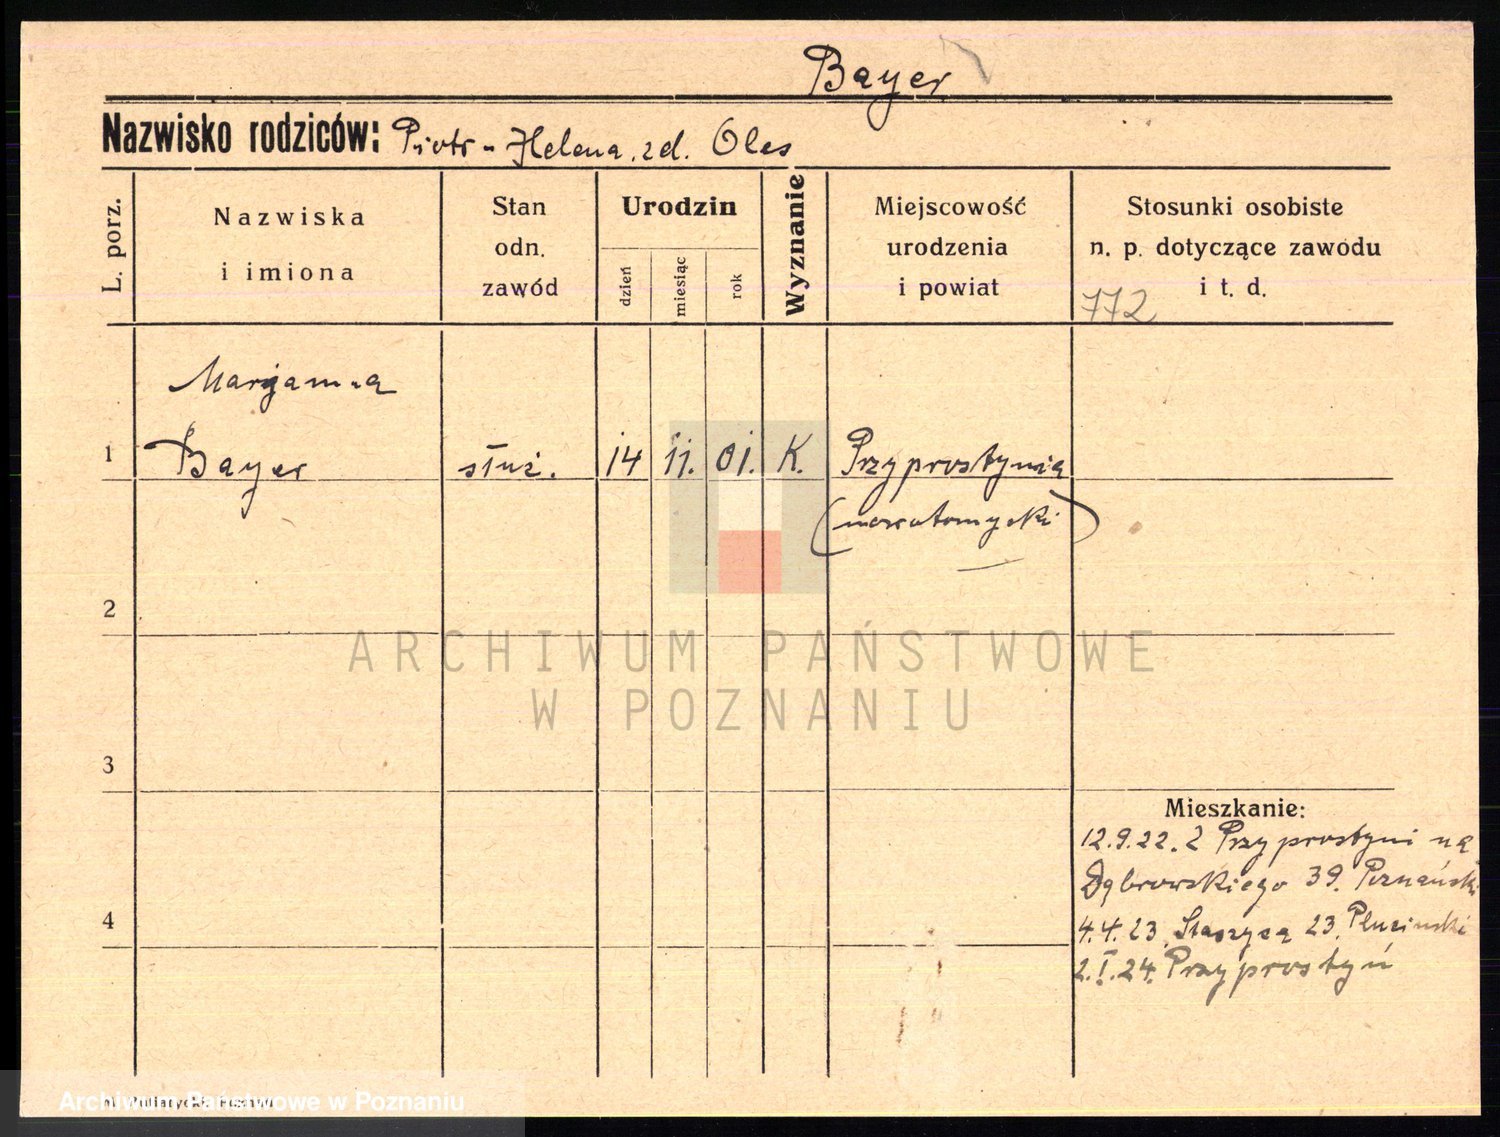 Bayer
Nazwisko rodziców: Piotr - Helena, zd. Oles
L. porz.
Nazwiska
i imiona
Stan
odn.
zawód
Urodzin
dzień
miesiąc
rok
Wyznanie
Miejscowość
urodzenia
i powiat
Stosunki osobiste
n. p. dotyczące zawodu
i t. d.
772
Marjanna
1 Bayer służ. 14 11. 01. K. Przyprostynia
(nowotomyski)
2
ARCHIWUM PAŃSTWOWE
W POZNANIU
3
Mieszkanie:
12.9.22. z Przyprostyni na
Dąbrowskiego 39. Poznański
4
4.4.23. Staszyca 23. Pluciński
2.I.24. Przyprostyń
Archiwum Państwowe w Poznaniu